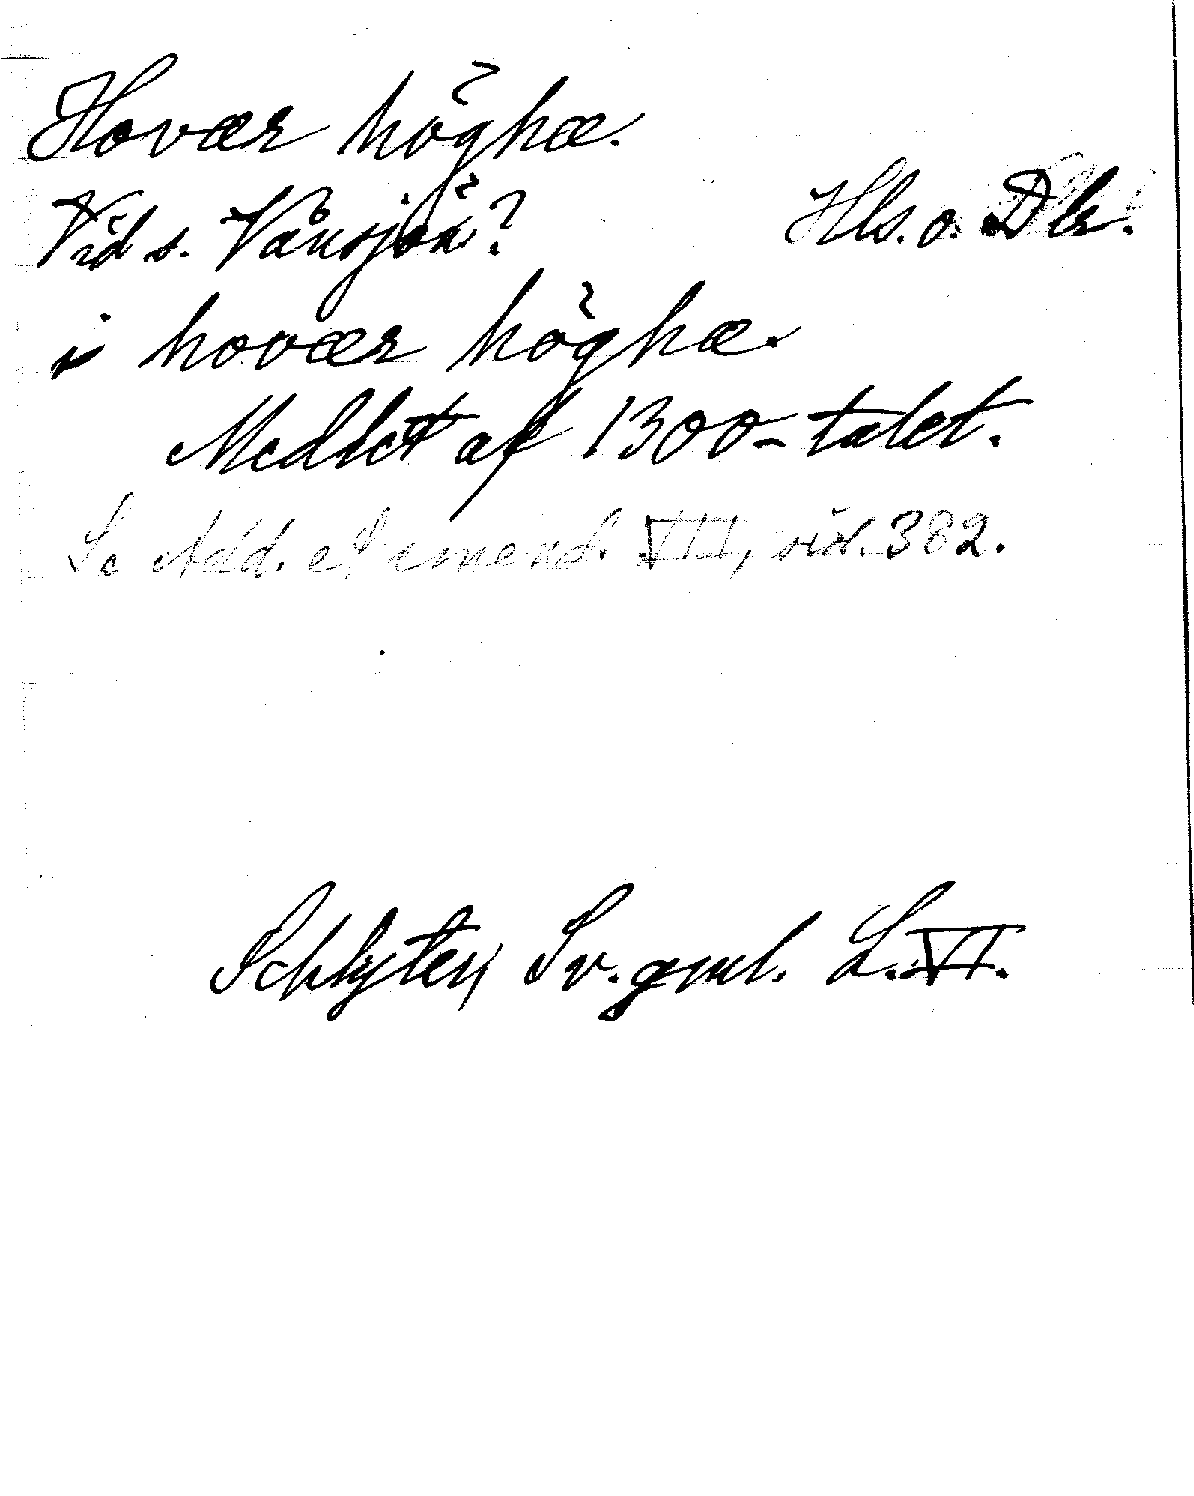 Hovær höghæ.
Vid s. Vånsjön?
Hls. o. Dlr.
i hovær höghæ.
Medlet af 1300-talet.
Se Add. et emend. XIII, sid. 382.
Schlyter, Sv. gml. L. VI.